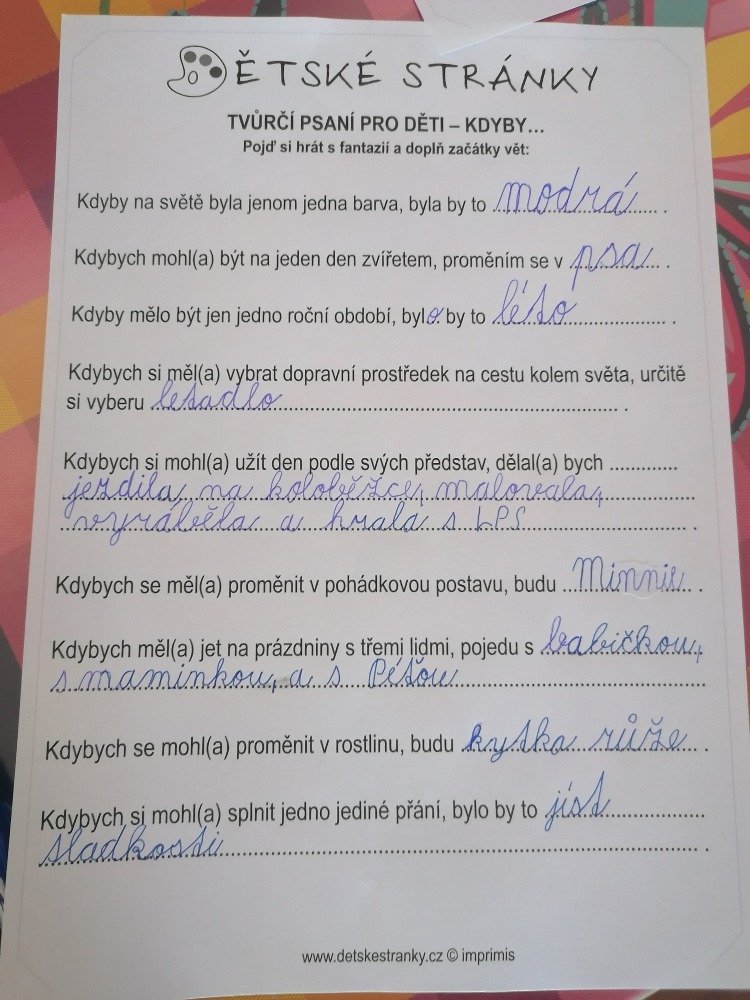 DĚTSKÉ STRÁNKY
TVŮRČÍ PSANÍ PRO DĚTI – KDYBY...
Pojď si hrát s fantazií a doplň začátky vět:
Kdyby na světě byla jenom jedna barva, byla by to modrá .
Kdybych mohl(a) být na jeden den zvířetem, proměním se v psa .
Kdyby mělo být jen jedno roční období, bylo by to léto .
Kdybych si měl(a) vybrat dopravní prostředek na cestu kolem světa, určitě
si vyberu letadlo .
Kdybych si mohl(a) užít den podle svých představ, dělal(a) bych .............
jezdila na koloběžce, malovala,
vyráběla a hrala s LPS .
Kdybych se měl(a) proměnit v pohádkovou postavu, budu Minnie .
Kdybych měl(a) jet na prázdniny s třemi lidmi, pojedu s babičkou,
s maminkou, a s Péťou
Kdybych se mohl(a) proměnit v rostlinu, budu kytka růže .
Kdybych si mohl(a) splnit jedno jediné přání, bylo by to jíst
sladkosti .
www.detskestranky.cz © imprimis